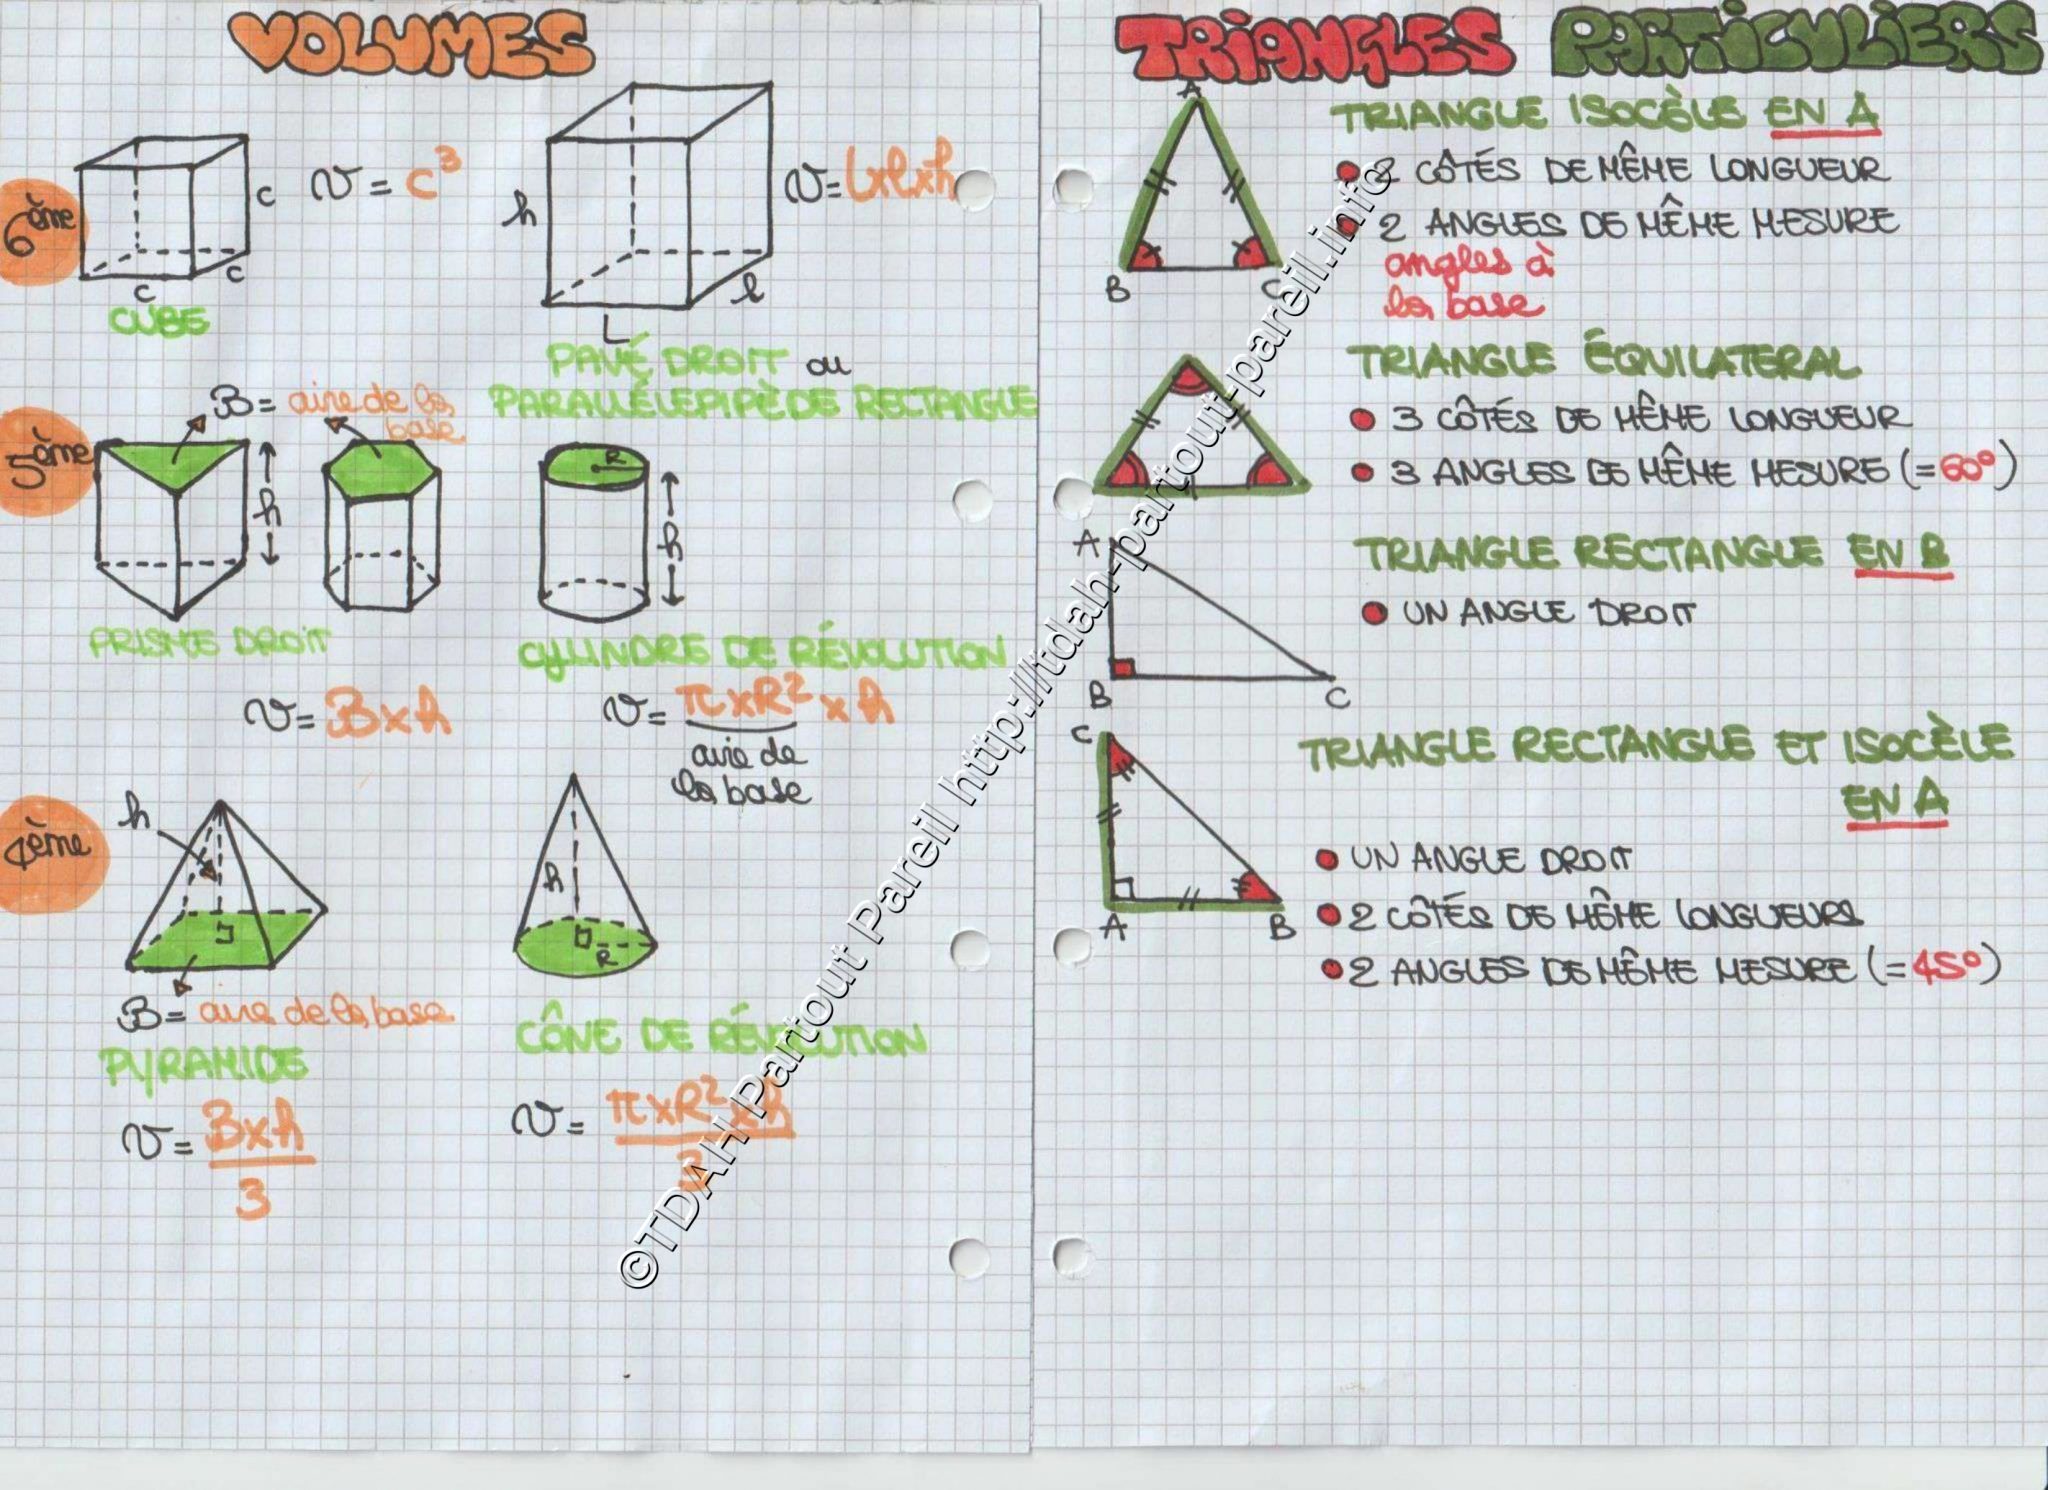 VOLUMES
6ème
V = c³
c
c
c
CUBE
h
L
l
V = L×l×h
PAVÉ DROIT ou
PARALLÉLÉPIPÈDE RECTANGLE
5ème
B = aire de la
base
h
PRISME DROIT
V = B×h
R
h
CYLINDRE DE RÉVOLUTION
V = π×R² × h
aire de
la base
4ème
h
B = aire de la base
PYRAMIDE
V = B×h
3
h
R
CÔNE DE RÉVOLUTION
V = π×R²×h
3
TRIANGLES PARTICULIERS
A
B
C
TRIANGLE ISOCÈLE EN A
2 CÔTÉS DE MÊME LONGUEUR
2 ANGLES DE MÊME MESURE
angles à
la base
TRIANGLE ÉQUILATERAL
3 CÔTÉS DE MÊME LONGUEUR
3 ANGLES DE MÊME MESURE (= 60°)
A
B
C
TRIANGLE RECTANGLE EN B
UN ANGLE DROIT
C
A
B
TRIANGLE RECTANGLE ET ISOCÈLE
EN A
UN ANGLE DROIT
2 CÔTÉS DE MÊME LONGUEURS
2 ANGLES DE MÊME MESURE (= 45°)
©TDAH Partout Pareil http://tdah-partout-pareil.info